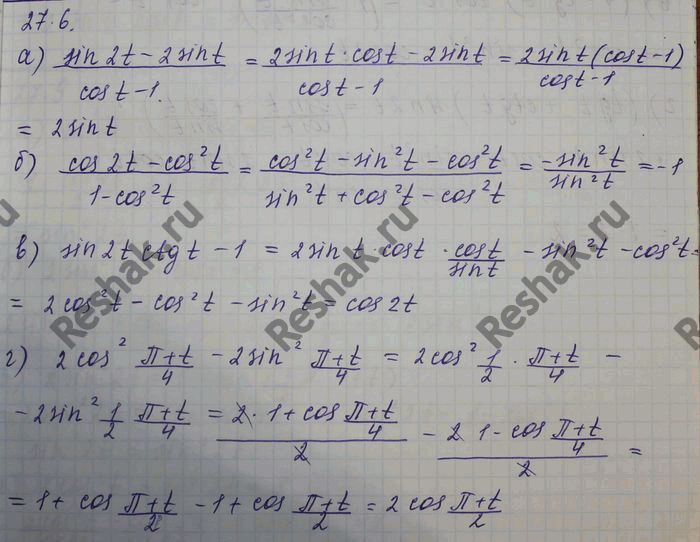 27.6.
а) (sin 2t − 2 sin t)/(cos t − 1) = (2 sin t · cos t − 2 sin t)/(cos t − 1) = (2 sin t (cos t − 1))/(cos t − 1)
= 2 sin t
б) (cos 2t − cos²t)/(1 − cos²t) = (cos²t − sin²t − cos²t)/(sin²t + cos²t − cos²t) = (−sin²t)/(sin²t) = −1
в) sin 2t ctg t − 1 = 2 sin t · cos t · (cos t)/(sin t) − sin²t − cos²t =
= 2 cos²t − cos²t − sin²t = cos 2t
г) 2 cos² (π+t)/4 − 2 sin² (π+t)/4 = 2 cos² 1/2 · (π+t)/4 −
− 2 sin² 1/2 (π+t)/4 = (2 · 1 + cos (π+t)/4)/2 − (2 1 − cos (π+t)/4)/2 =
= 1 + cos (π+t)/2 − 1 + cos (π+t)/2 = 2 cos (π+t)/2
Reshak.ru
Reshak.ru
Reshak.ru